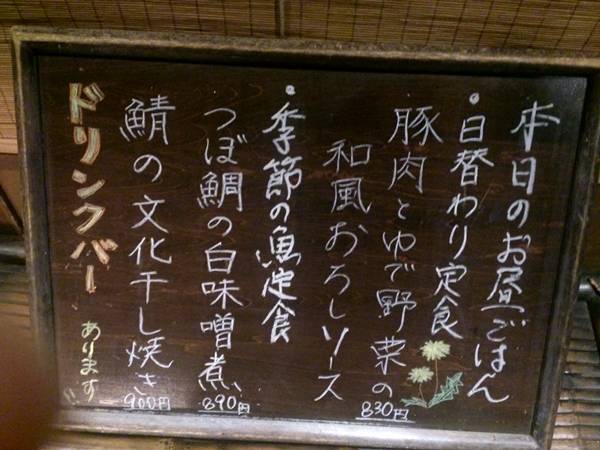 本日のお昼ごはん
・日替わり定食
豚肉とゆで野菜の
和風おろしソース
830円
・季節の魚定食
つぼ鯛の白味噌煮
890円
鯖の文化干し焼き
900円
ドリンクバー
あります